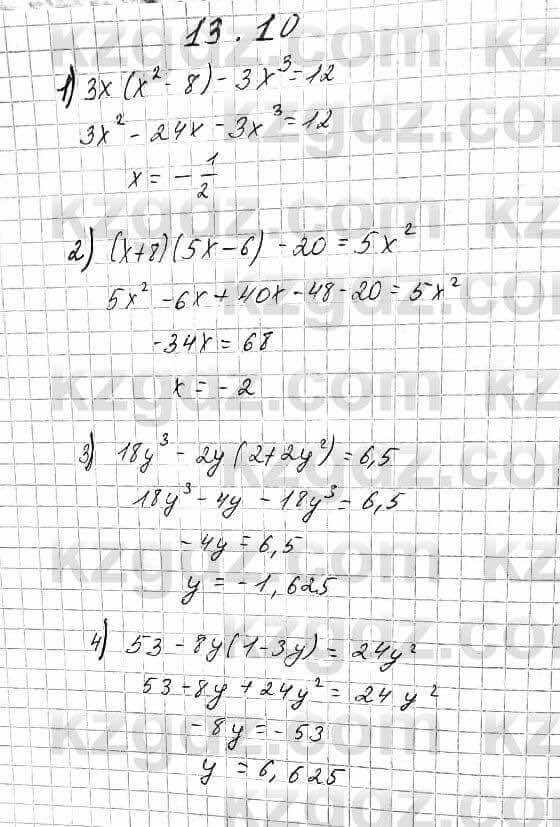 13.10
1) 3x(x² - 8) - 3x³ = 12
3x² - 24x - 3x³ = 12
x = - 1/2
2) (x+8)(5x-6) - 20 = 5x²
5x² - 6x + 40x - 48 - 20 = 5x²
-34x = 68
x = - 2
3) 18y³ - 2y(2+2y²) = 6,5
18y³ - 4y - 18y³ = 6,5
- 4y = 6,5
y = -1,625
4) 53 - 8y(1-3y) = 24y²
53 - 8y + 24y² = 24y²
- 8y = - 53
y = 6,625
kzgdz.com